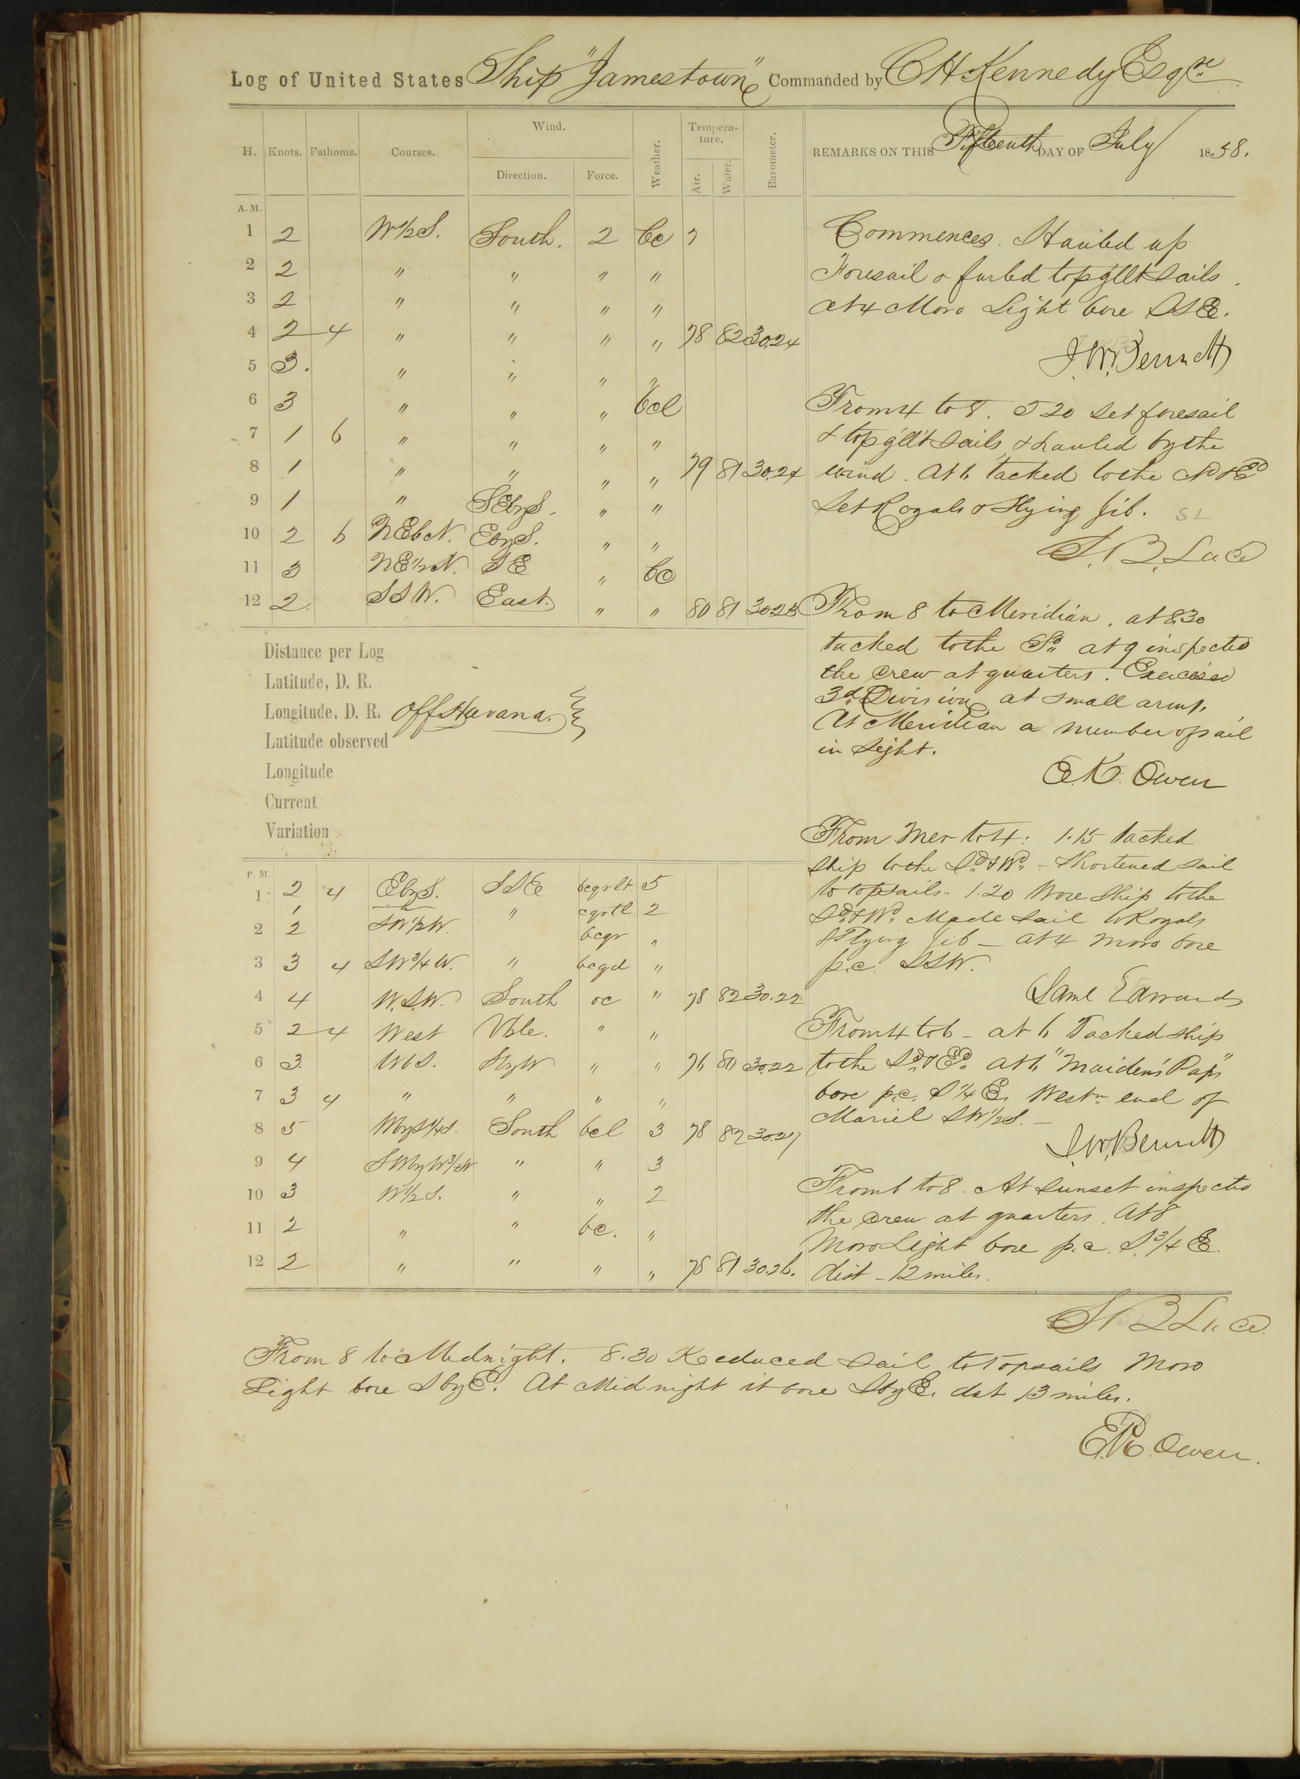 Log of United States Ship "Jamestown" Commanded by C H Kennedy Esqre
H. Knots. Fathoms. Courses. Wind. Direction. Force. Weather. Tempera-ture. Air. Water. Barometer. REMARKS ON THIS Fifteenth DAY OF July 1858.
A. M.
1 2 W ½ S. South. 2 bc 7
2 2 " " " "
3 2 " " " "
4 2 4 " " " " 78 82 30.24
5 3. " " " "
6 3 " " " bcl
7 1 6 " " " "
8 1 " " " " 79 81 30.24
9 1 " SEbyS. " "
10 2 6 NEbN. EbyS. " "
11 3 NE½N. SE " bc
12 2 SSW. East. " " 80 81 30.25
Commences. Hauled up
Foresail & furled top gllt sails.
At 4 Moro Light bore SSE.
J.W. Bennett
From 4 to 8. 5.20 set foresail
& top gllt sails & hauled by the
wind. At 6 tacked to the Nd & Ed
Set Royals & Flying Jib. SL
S. B. Luce
From 8 to Meridian. at 8.30
tacked to the Sd. at 9 inspected
the crew at quarters. Exercised
3d Division at small arms.
At Meridian a number of sail
in sight.
E.K. Owen
Distance per Log
Latitude, D. R.
Longitude, D. R. Off Havana.
Latitude observed
Longitude
Current
Variation
P. M.
1 2 4 EbyS. SSE bcqrlt 5
1 SW½W. " cqrtl 2
2 2 bcqr "
3 3 4 SW¾W. " bcqd "
4 4 W.S.W. South oc " 78 82 30.22
5 2 4 West Vble. " "
6 3 WbS. SbyW " " 76 80 30.22
7 3 4 " " " "
8 5 WbyS¼S. South bcl 3 78 82 30.27
9 4 SWbyW¾W " " 3
10 3 W½S. " " 2
11 2 " " bc. "
12 2 " " " " 78 81 30.26.
From Mer to 4: 1.15 tacked
ship to the Sd & Wd. – Shortened sail
to topsails. 1.20 Wore ship to the
Sd & Wd. Made sail to Royals
& Flying Jib – at 4 Moro bore
p.c. SSW.
Saml Edwards
From 4 to 6 – at 6 Tacked ship
to the Sd & Ed. At 6 "Maiden's Paps"
bore p.c. S¼E. Westn end of
Mariel SW½S. –
J.W. Bennett
From 6 to 8. At sunset inspected
the crew at quarters. At 8
Moro Light bore p.c. S.¾E.
dist – 12 miles.
S. B. Luce
From 8 to Midnight. 8.30 Reduced sail to Topsails Moro
Light bore SbyE. At Midnight it bore SbyE. dist 13 miles.
E.K. Owen.